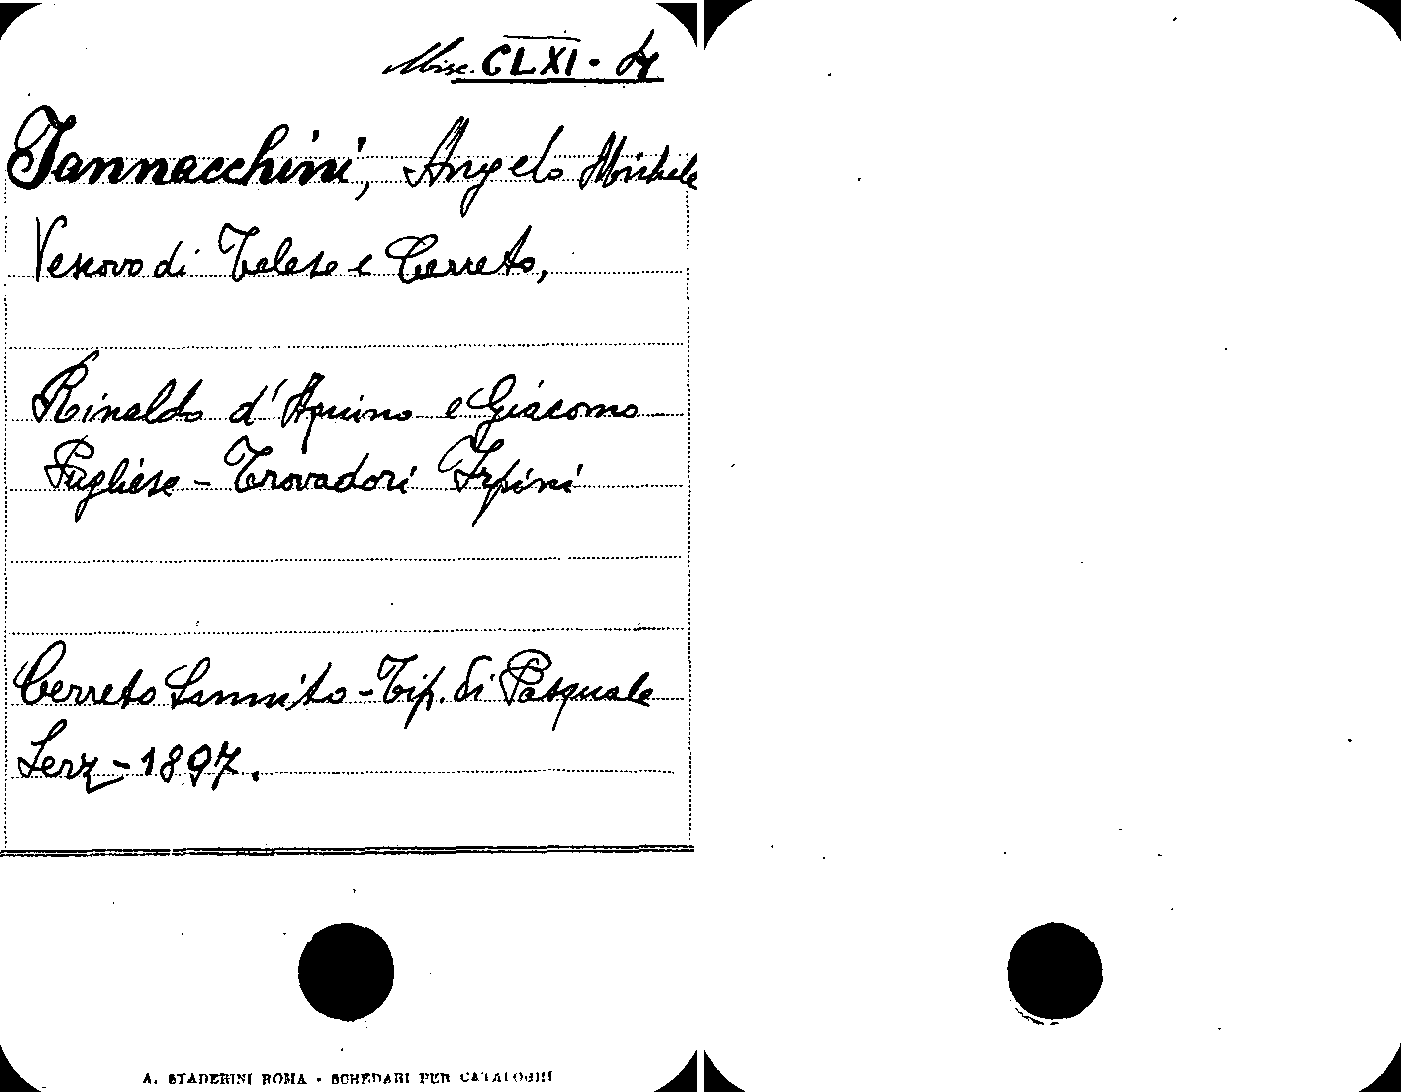 Misc. CLXI - 4
Iannacchini, Angelo Michele
Vescovo di Telese e Cerreto,
Rinaldo d'Aquino e Giacomo
Pugliese - Trovadori Irpini
Cerreto Sannito - Tip. di Pasquale
Lerz - 1897.
A. STADERINI ROMA - SCHEDARI PER CATALOGHI